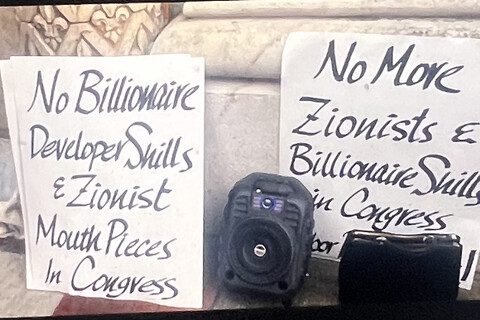 No Billionaire
Developer Shills
& Zionist
Mouth Pieces
In Congress
No More
Zionists &
Billionaire Shills
in Congress